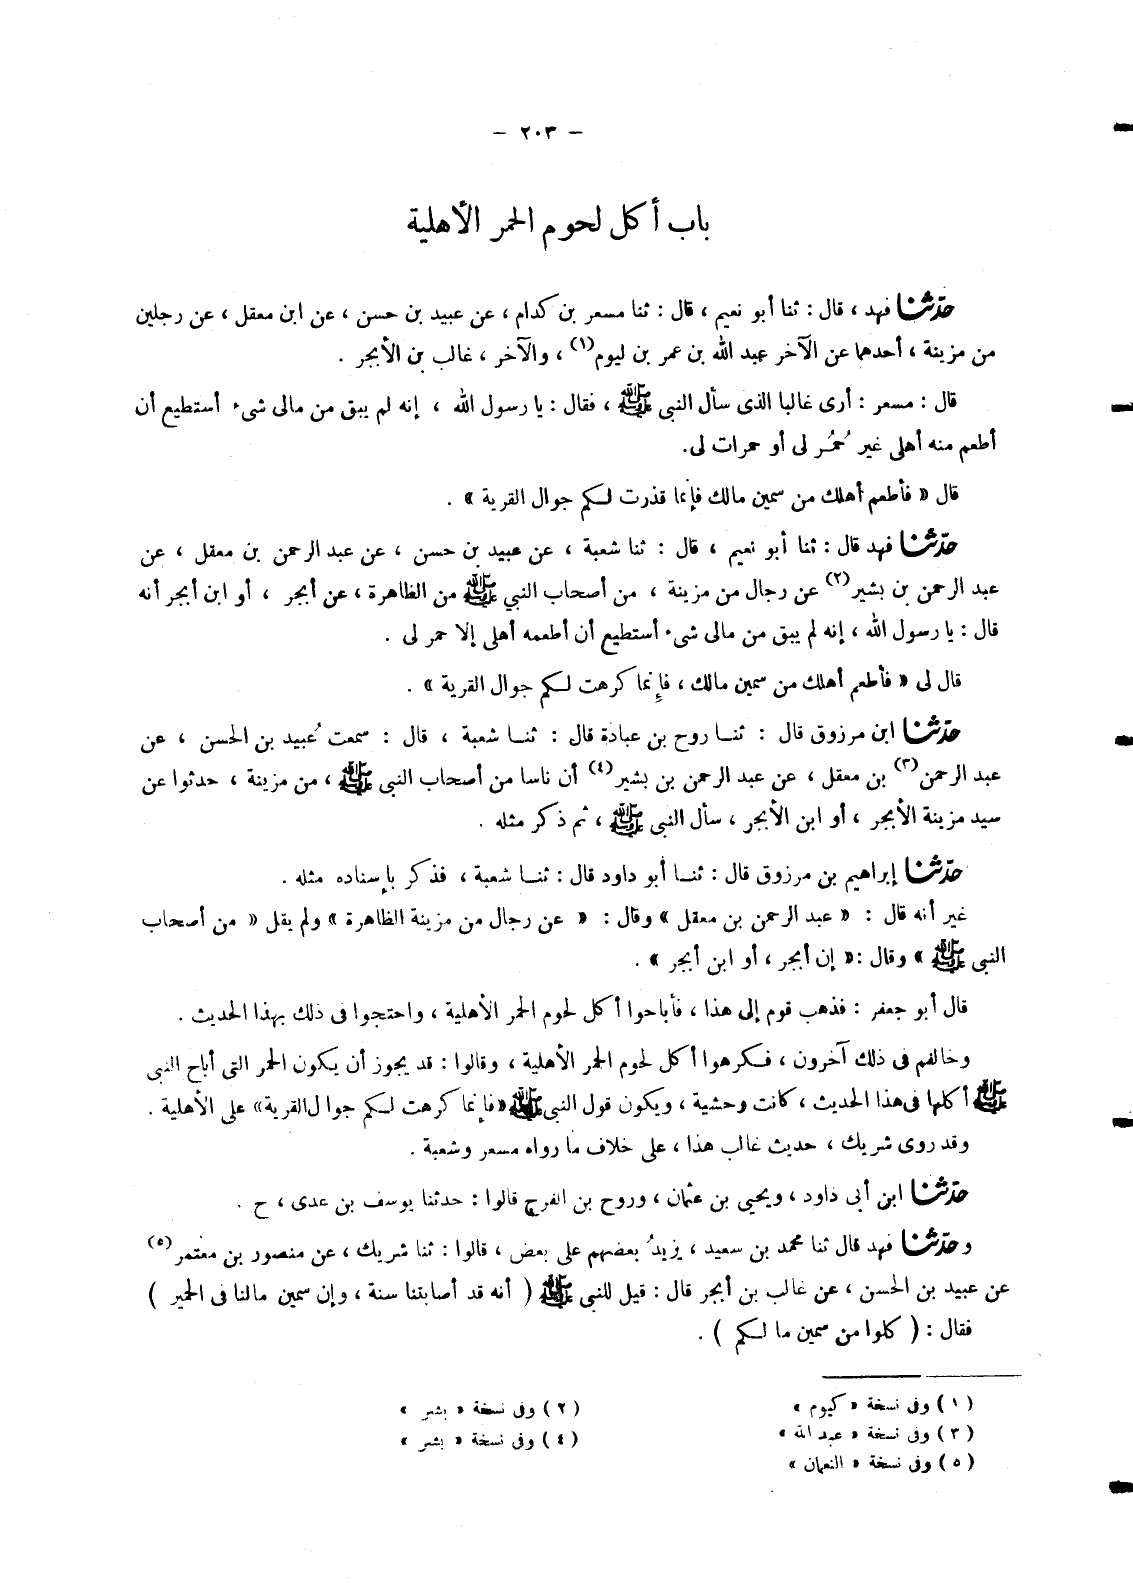 – ٢٠٣ –
باب أكل لحوم الحمر الأهلية
حدّثنا فهد ، قال : ثنا أبو نعيم ، قال : ثنا مسعر بن كدام ، عن عبيد بن حسن ، عن ابن معقل ، عن رجلين
من مزينة ، أحدهما عن الآخر عبد الله بن عمر بن ليوم(١) ، والآخر ، غالب بن الأبجر .
قال : مسعر : أرى غالبا الذى سأل النبى ﷺ ، فقال : يا رسول الله ، إنه لم يبق من مالى شىء أستطيع أن
أطعم منه أهلى غير حُمُر لى أو حمرات لى.
قال « فأطعم أهلك من سمين مالك فإنما قذرت لكم جوال القرية » .
حدّثنا فهد قال : ثنا أبو نعيم ، قال : ثنا شعبة ، عن عبيد بن حسن ، عن عبد الرحمن بن معقل ، عن
عبد الرحمن بن بشير(٢) عن رجال من مزينة ، من أصحاب النبي ﷺ من الظاهرة ، عن أبجر ، أو ابن أبجر أنه
قال : يا رسول الله ، إنه لم يبق من مالى شىء أستطيع أن أطعمه أهلى إلا حمر لى .
قال لى « فأطعم أهلك من سمين مالك ، فإنما كرهت لكم جوال القرية » .
حدّثنا ابن مرزوق قال : ثنا روح بن عبادة قال : ثنا شعبة ، قال : سمعت عُبيد بن الحسن ، عن
عبد الرحمن(٣) بن معقل ، عن عبد الرحمن بن بشير(٤) أن ناسا من أصحاب النبى ﷺ ، من مزينة ، حدثوا عن
سيد مزينة الأبجر ، أو ابن الأبجر ، سأل النبى ﷺ ، ثم ذكر مثله .
حدّثنا إبراهيم بن مرزوق قال : ثنا أبو داود قال : ثنا شعبة ، فذكر بإسناده مثله .
غير أنه قال : « عبد الرحمن بن معقل » وقال : « عن رجال من مزينة الظاهرة » ولم يقل « من أصحاب
النبى ﷺ » وقال :« إن أبجر ، أو ابن أبجر » .
قال أبو جعفر : فذهب قوم إلى هذا ، فأباحوا أكل لحوم الحمر الأهلية ، واحتجوا فى ذلك بهذا الحديث .
وخالفهم فى ذلك آخرون ، فكرهوا أكل لحوم الحمر الأهلية ، وقالوا : قد يجوز أن يكون الحمر التى أباح النبى
ﷺ أكلها فى هذا الحديث ، كانت وحشية ، ويكون قول النبى ﷺ «فإنما كرهت لكم جوال القرية» على الأهلية .
وقد روى شريك ، حديث غالب هذا ، على خلاف ما رواه مسعر وشعبة .
حدّثنا ابن أبى داود ، ويحيى بن عثمان ، وروح بن الفرج قالوا : حدثنا يوسف بن عدى ، ح .
وحدّثنا فهد قال ثنا محمد بن سعيد ، يزيدُ بعضهم على بعض ، قالوا : ثنا شريك ، عن منصور بن معتمر(٥)
عن عبيد بن الحسن ، عن غالب بن أبجر قال : قيل للنبى ﷺ ( أنه قد أصابتنا سنة ، وإن سمين مالنا فى الحمير )
فقال : ( كلوا من سمين ما لكم ) .
(١) وفى نسخة « كيوم » (٢) وفى نسخة « بشر »
(٣) وفى نسخة « عبد الله » (٤) وفى نسخة « بشر »
(٥) وفى نسخة « النعمان »